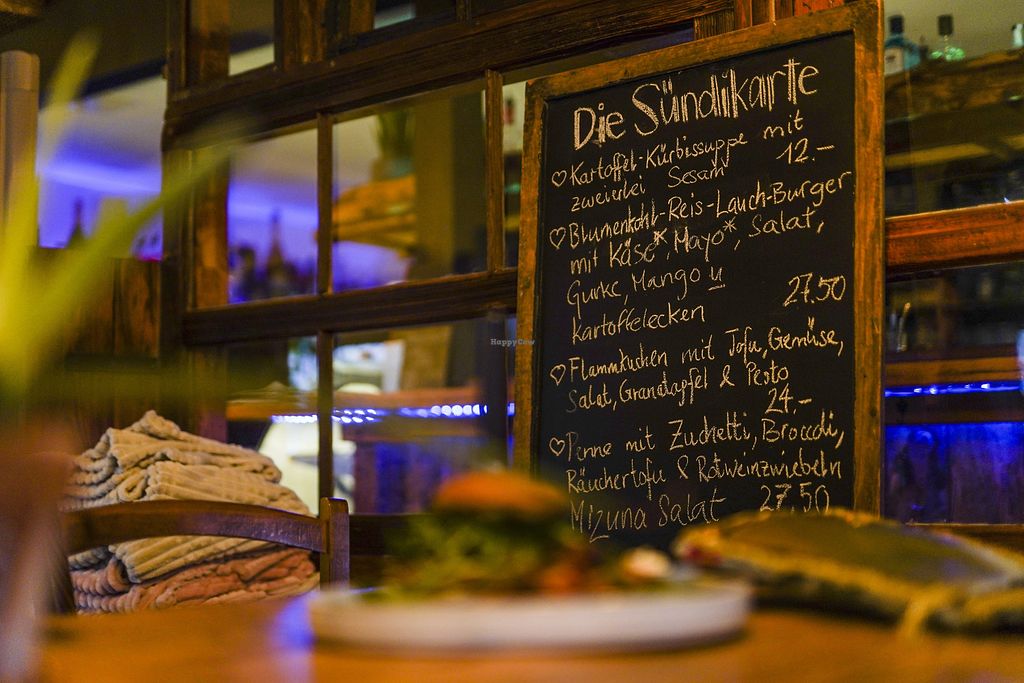 Die Sündikarte
♡ Kartoffel-Kürbissuppe mit
zweierlei Sesam 12.-
♡ Blumenkohl-Reis-Lauch-Burger
mit Käse*, Mayo*, Salat,
Gurke, Mango u
Kartoffelecken 27.50
♡ Flammkuchen mit Tofu, Gemüse,
Salat, Granatapfel & Pesto
24.-
♡ Penne mit Zuchetti, Broccoli,
Räuchertofu & Rotweinzwiebeln
Mizuna Salat 27.50
HappyCow